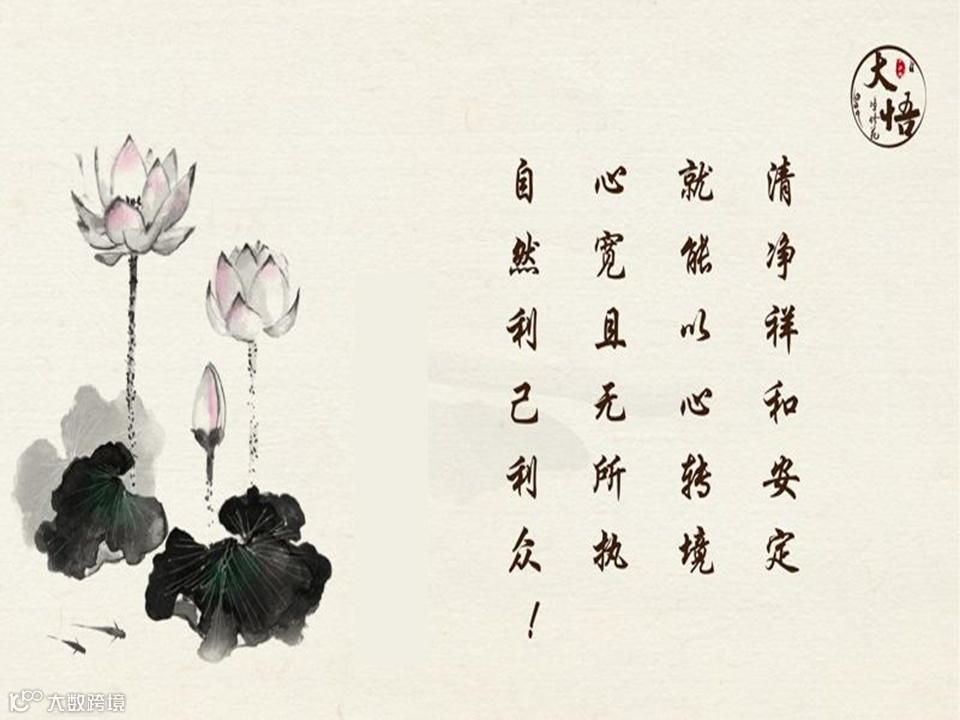 大悟
清净祥和安定
就能以心转境
心宽且无所执
自然利己利众！
大数跨境